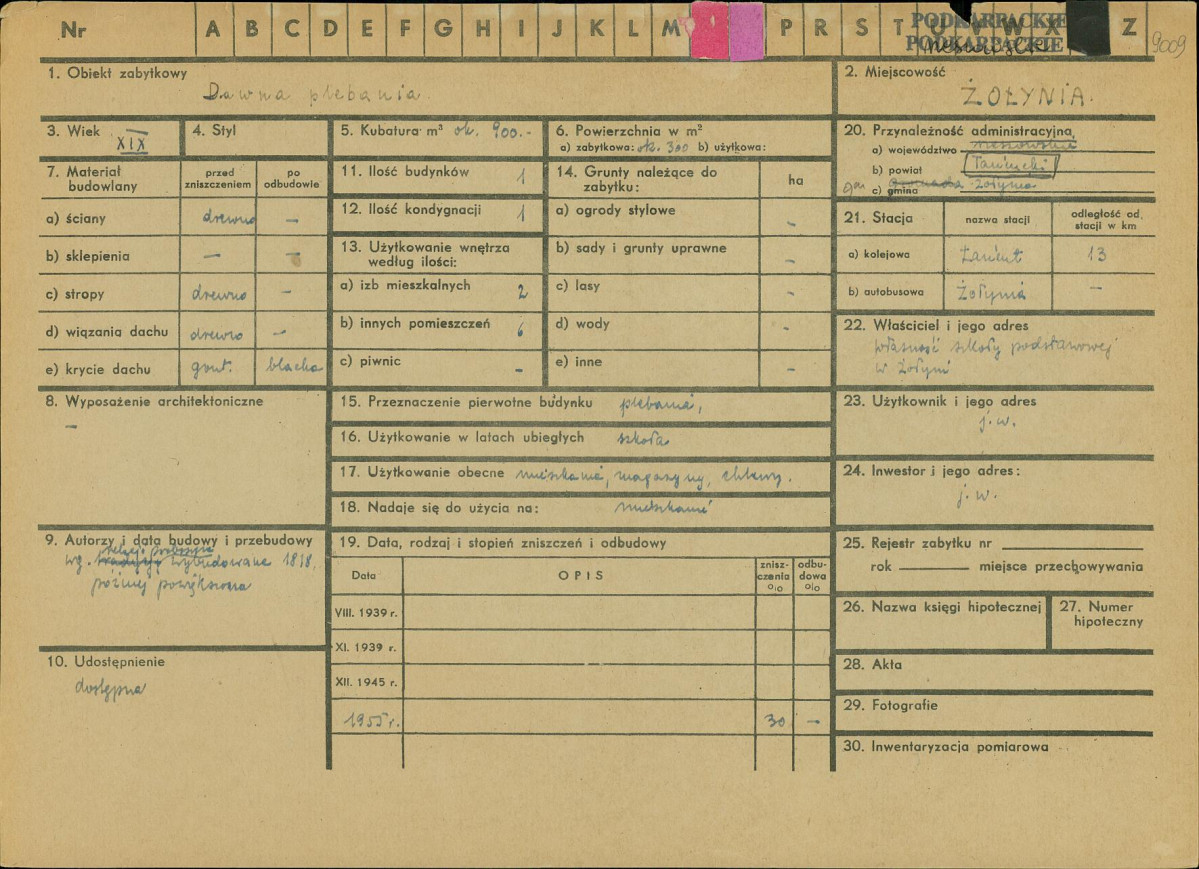 Nr A B C D E F G H I J K L M P R S T U V W X Z
PODKARPACKIE
PODKARPACKIE
9009
1. Obiekt zabytkowy
Dawna plebania
2. Miejscowość
ŻOŁYNIA.
3. Wiek
XIX
4. Styl
5. Kubatura m³ ok. 900.-
6. Powierzchnia w m²
a) zabytkowa: ok. 300 b) użytkowa:
20. Przynależność administracyjna,
a) województwo rzeszowskie
b) powiat Łańcucki
gm c) gmina gromada Żołynia
7. Materiał budowlany
przed zniszczeniem
po odbudowie
a) ściany drewno –
b) sklepienia – –
c) stropy drewno –
d) wiązania dachu drewno –
e) krycie dachu gont. blacha
11. Ilość budynków 1
12. Ilość kondygnacji 1
13. Użytkowanie wnętrza
według ilości:
a) izb mieszkalnych 2
b) innych pomieszczeń 6
c) piwnic –
14. Grunty należące do
zabytku:
ha
a) ogrody stylowe –
b) sady i grunty uprawne –
c) lasy –
d) wody –
e) inne –
21. Stacja
nazwa stacji
odległość od stacji w km
a) kolejowa Łańcut 13
b) autobusowa Żołynia –
22. Właściciel i jego adres
własność szkoły podstawowej
w Żołyni
8. Wyposażenie architektoniczne
–
15. Przeznaczenie pierwotne budynku plebania,
16. Użytkowanie w latach ubiegłych szkoła
17. Użytkowanie obecne mieszkanie, magazyny, chlewy.
18. Nadaje się do użycia na: mieszkanie
23. Użytkownik i jego adres
j.w.
24. Inwestor i jego adres:
j.w.
9. Autorzy i data budowy i przebudowy
relacji proboszcza
wg. tradycji wybudowana 1818,
później powiększona
19. Data, rodzaj i stopień zniszczeń i odbudowy
Data
OPIS
znisz-
czenia
o/o
odbu-
dowa
o/o
VIII. 1939 r.
XI. 1939 r.
XII. 1945 r.
1955 r. 30 –
25. Rejestr zabytku nr
rok miejsce przechowywania
26. Nazwa księgi hipotecznej
27. Numer
hipoteczny
10. Udostępnienie
dostępna
28. Akta
29. Fotografie
30. Inwentaryzacja pomiarowa